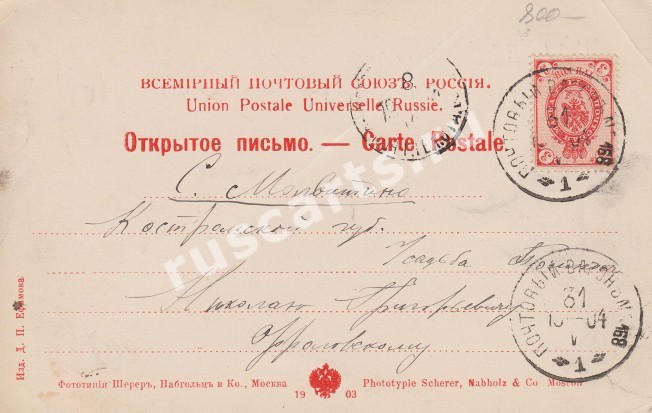 800—
ВСЕМІРНЫЙ ПОЧТОВЫЙ СОЮЗЪ. РОССІЯ.
Union Postale Universelle. Russie.
Открытое письмо. — Carte Postale.
С. Молвитино
Костромской губ.
Усадьба
Николаю Григорьевичу
ПОЧТОВЫЙ ВАГОНЪ № 168
31
04
V
1
8
ПОЧТОВЫЙ ВАГОНЪ № 168
31
10 - 04
V
1
Изд. Д. П. Ефимова
Фототипія Шереръ, Набгольцъ и Ко., Москва
Phototypie Scherer, Nabholz & Co Moscou
19 03
ruscarts.ru